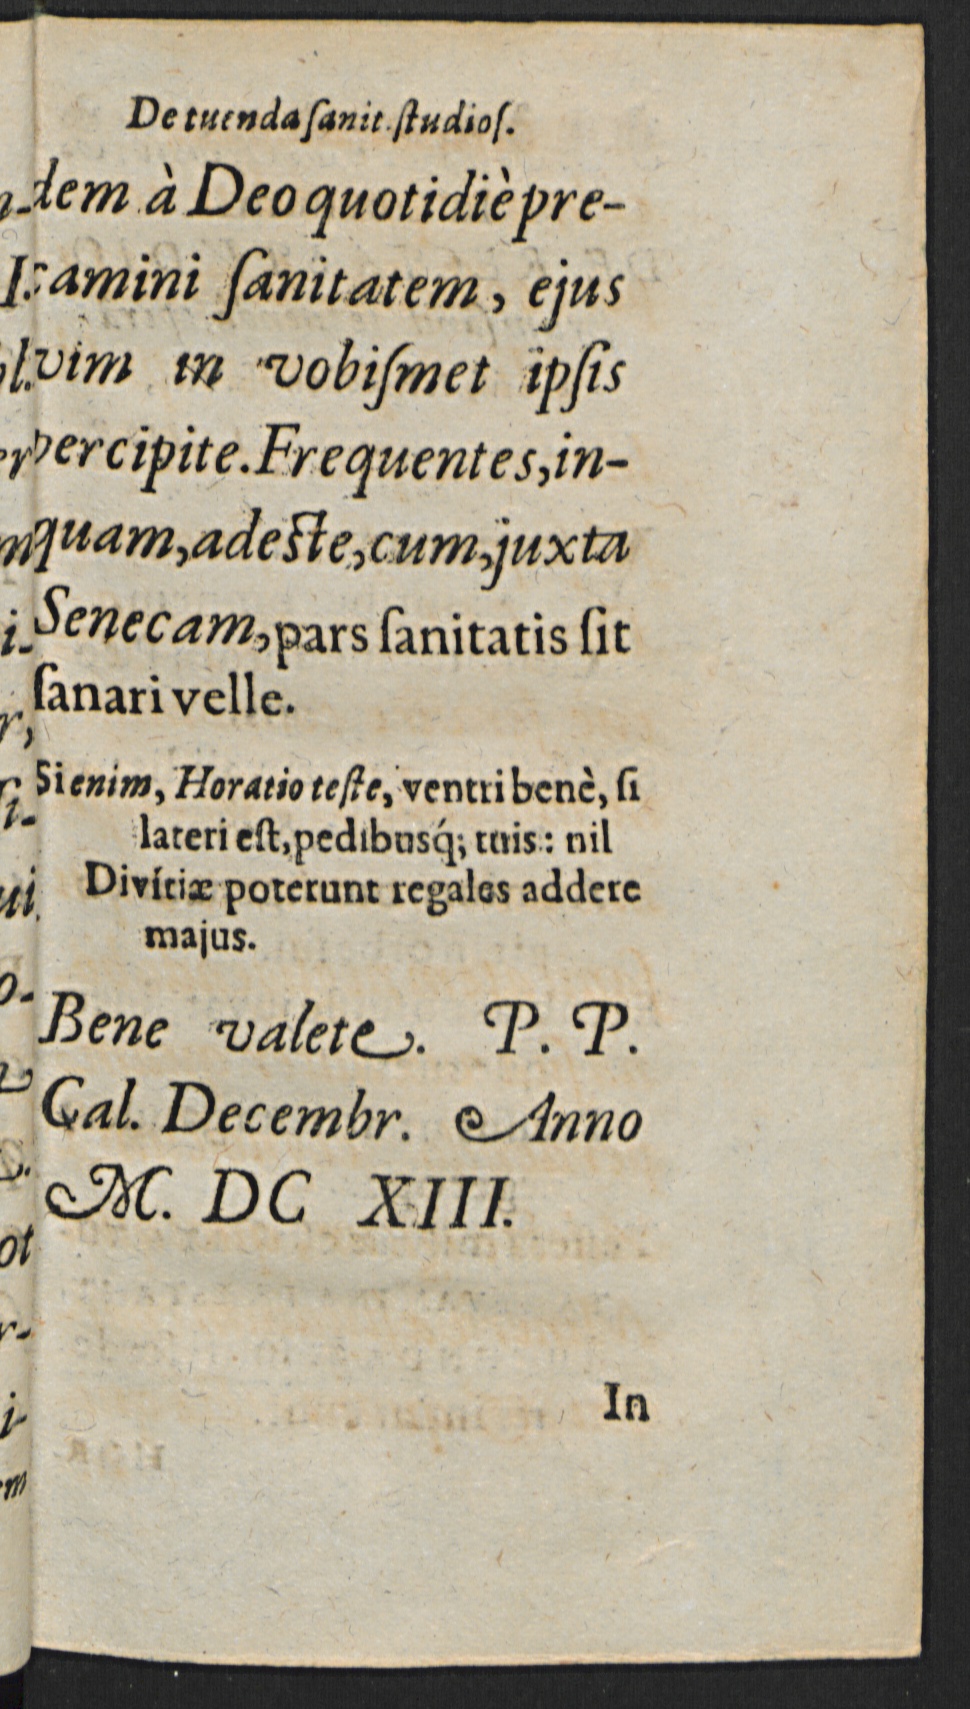 De tuenda ſanit. ſtudioſ.
dem à Deo quotidiè pre-
camini ſanitatem, ejus
vim in vobiſmet ipſis
percipite. Frequentes, in-
quam, adeſte, cum, juxta
Senecam, pars ſanitatis ſit
ſanari velle.
Si enim, Horatio teſte, ventri benè, ſi
lateri eſt, pedibusq́; tuis: nil
Divitiæ poterunt regales addere
majus.
Bene valete. P. P.
Cal. Decembr. Anno
M. DC XIII.
In